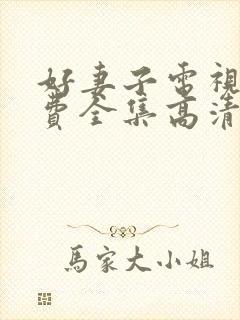 好妻子電視
費全集高清
馬家大小姐